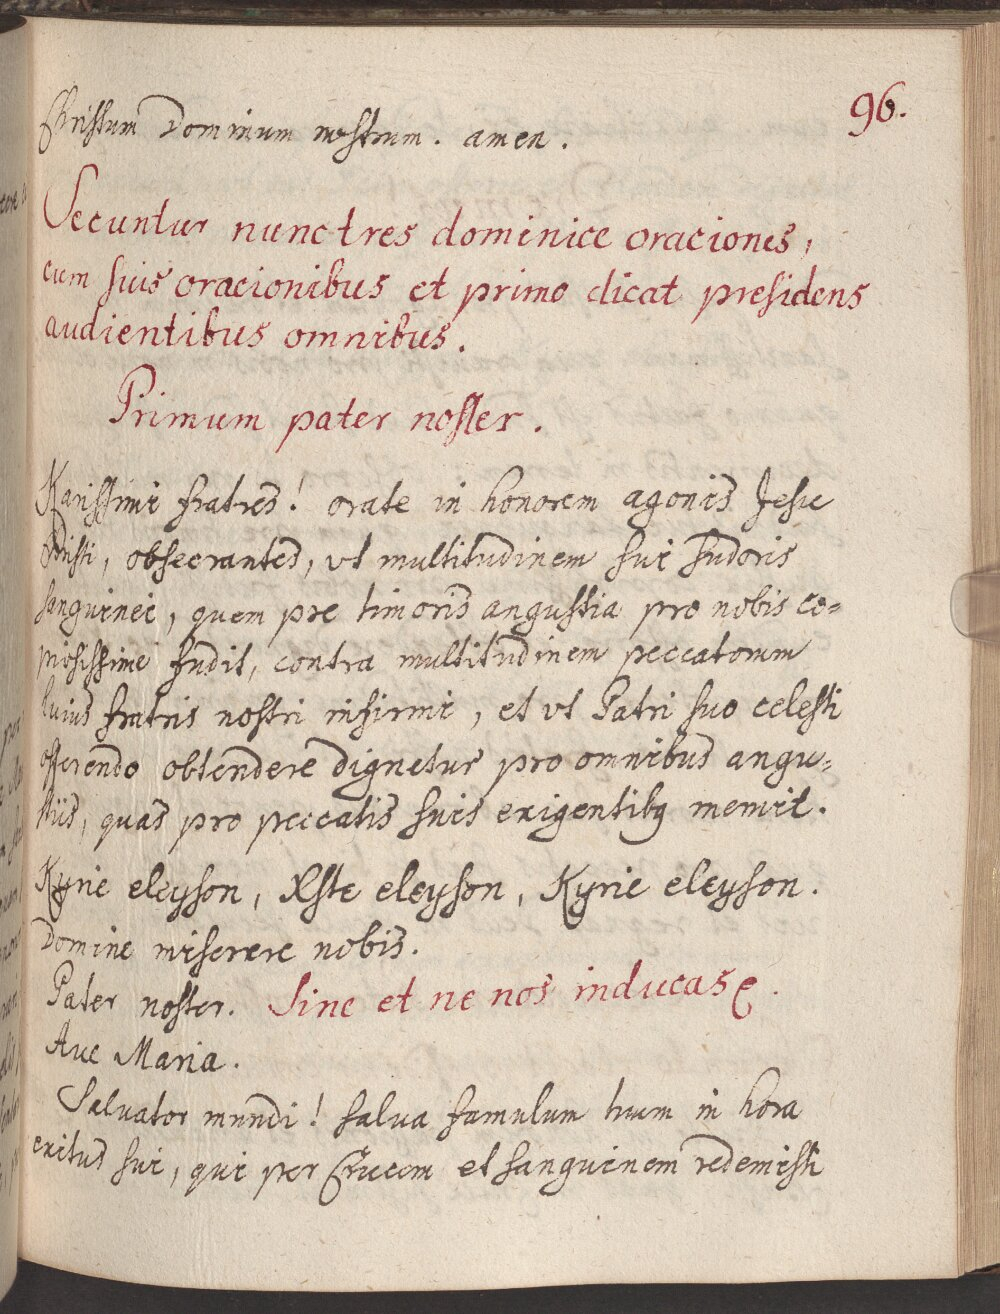 96.
Christum Dominum nostrum. amen.
Secuntur nunc tres dominice oraciones,
cum suis oracionibus et primo dicat presidens
audientibus omnibus.
Primum pater noster.
Karissimi fratres! orate in honorem agonis Jesu
Christi, obsecrantes, vt multitudinem sui sudoris
sanguinei, quem pre timoris angustia pro nobis co=
piosissime fudit, contra multitudinem peccatorum
huius fratris nostri infirmi, et vt Patri suo celesti
offerendo obtendere dignetur pro omnibus angu=
stiis, quas pro peccatis suis exigentibq meruit.
Kyrie eleyson, Xste eleyson, Kyrie eleyson.
Domine miserere nobis.
Pater noster. Sine et ne nos inducas
Aue Maria.
Saluator mundi! salua famulum tuum in hora
exitus sui, qui per Crucem et sanguinem redemisti